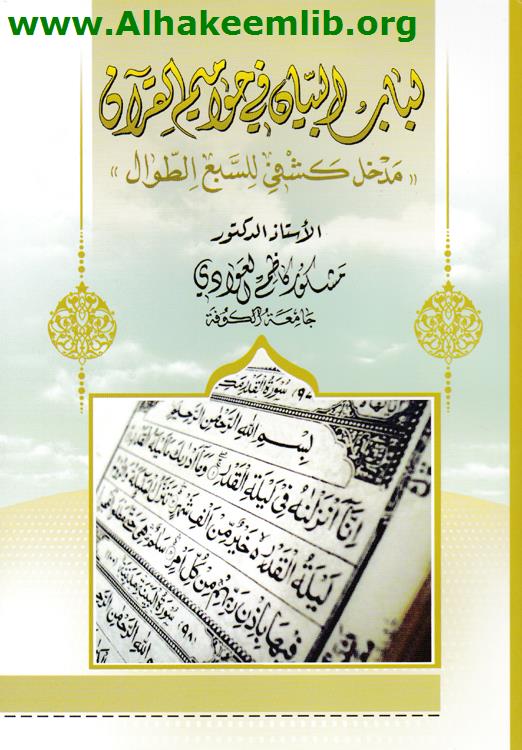 www.Alhakeemlib.org
لباب البيان في حواميم القرآن
«مدخل كشفي للسبع الطوال»
الأستاذ الدكتور
مشكور كاظم العوادي
جامعة الكوفة
٩٧ سورة القدر
بسم الله الرحمن الرحيم
إنا أنزلنه في ليلة القدر وما أدرك ما ليلة القدر
ليلة القدر خير من ألف شهر تنزل الملئكة
فيها بإذن ربهم من كل أمر سلم هي حتى
٩٨ سورة البينة
الله الرحمن الرحيم